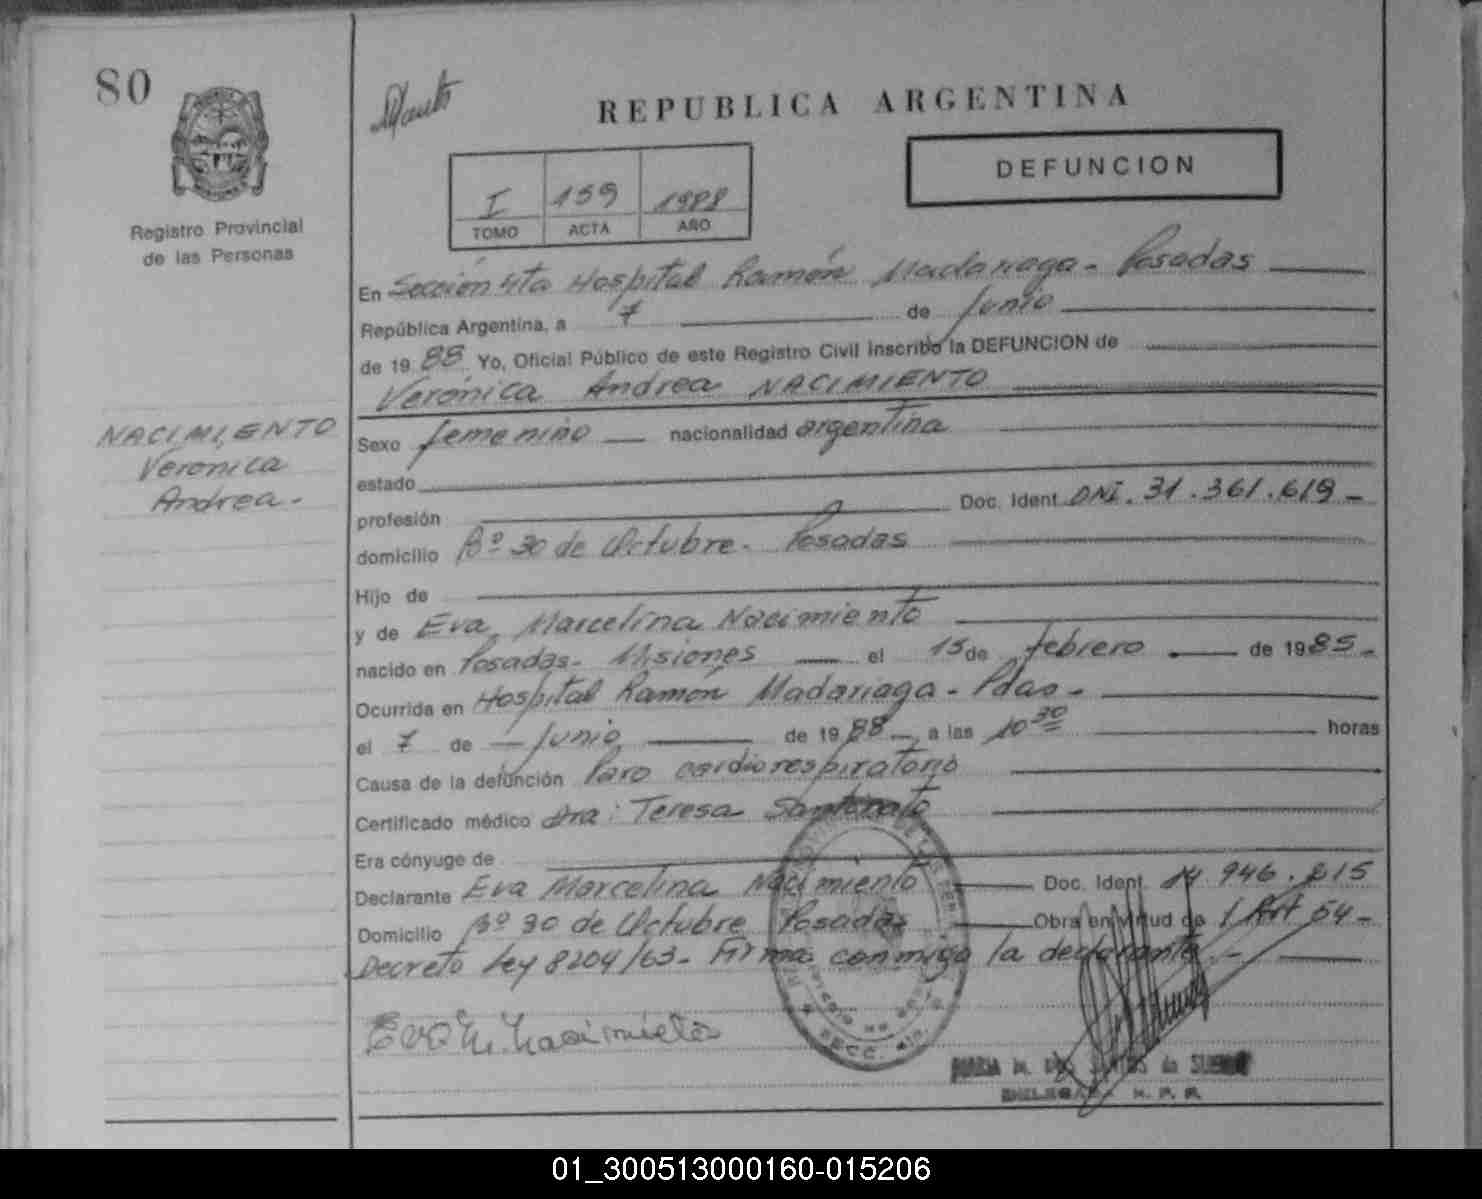 80
REPUBLICA ARGENTINA
DEFUNCION
I 159 1988
TOMO ACTA AÑO
Registro Provincial
de las Personas
En Sección 4ta Hospital Ramón Madariaga - Posadas
República Argentina, a 7 de Junio
de 19 88 Yo, Oficial Público de este Registro Civil inscribo la DEFUNCION de
Verónica Andrea NACIMIENTO
NACIMIENTO
Verónica
Andrea -
Sexo femenino nacionalidad argentina
estado
profesión Doc. Ident. DNI. 31.361.619 -
domicilio Bº 30 de Octubre - Posadas
Hijo de
y de Eva Marcelina Nacimiento
nacido en Posadas - Misiones el 15 de febrero de 1985 -
Ocurrida en Hospital Ramón Madariaga - Pdas -
el 7 de Junio de 19 88 a las 10 30 horas
Causa de la defunción Paro cardiorespiratorio
Certificado médico Dra: Teresa
Era cónyuge de
Declarante Eva Marcelina Nacimiento Doc. Ident. 14 946.215
Domicilio Bº 30 de Octubre Posadas Obra en virtud de / Art 54 -
Decreto Ley 8204/63 - Firma conmigo la declarante. -
Eva M. Nacimieto
SECC. 4ta.
01_300513000160-015206